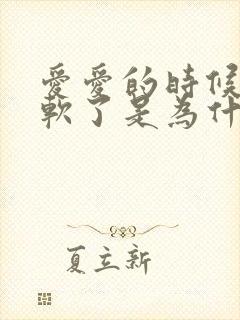 愛愛的時候
軟了是為什
夏立新